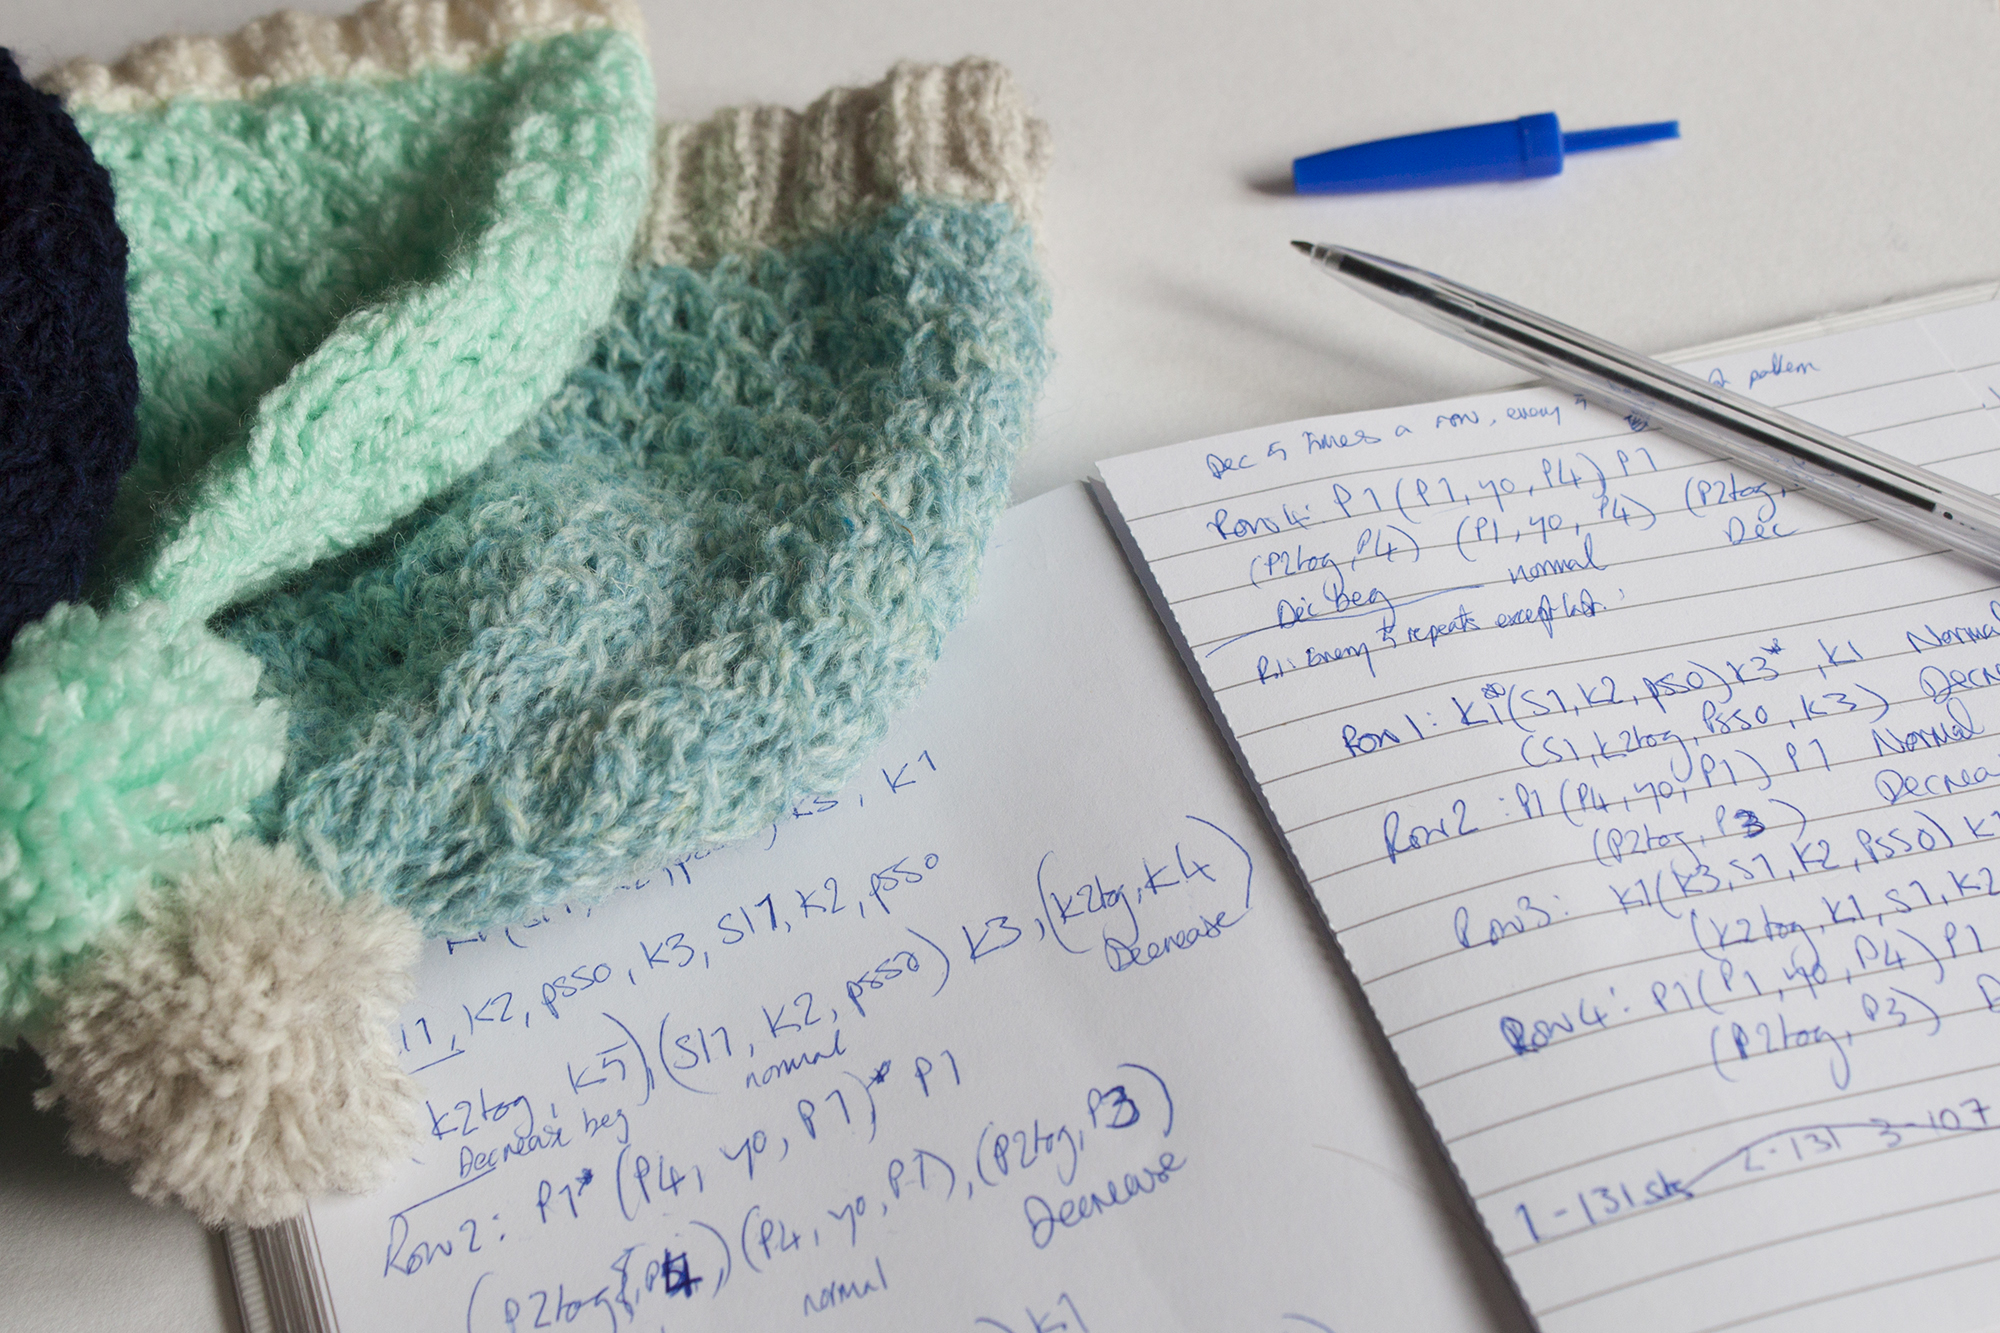 K1
K3, K1
S17, K2, psso, K3, S17, K2, psso
K2tog, K5) (S17, K2, psso) K3, (K2tog, K4)
Decrease beg normal Decrease
Row 2: P1* (P4, yo, P1)* P1
(P2tog, P4,) (P4, yo, P1), (P2tog, P3)
normal Decrease
K1
Dec 5 times a row, every 5 pattern
Row 4: P1 (P1, yo, P4) P1
(P2tog, P4) (P1, yo, P4) (P2tog,
Dec beg normal Dec
R1: Every 5 repeats except last.
Row 1: K1*(S1, K2, psso) K3*, K1 Normal
(S1, K2tog, psso, K3) Decre
Row 2: P1 (P4, yo, P1) P1 Normal
(P2tog, P3) Decrea
Row 3: K1 (K3, S1, K2, psso) K1
(K2tog, K1, S1, K2
Row 4: P1 (P1, yo, P4) P1
(P2tog, P3) D
1-131 sts 2-131 3-107